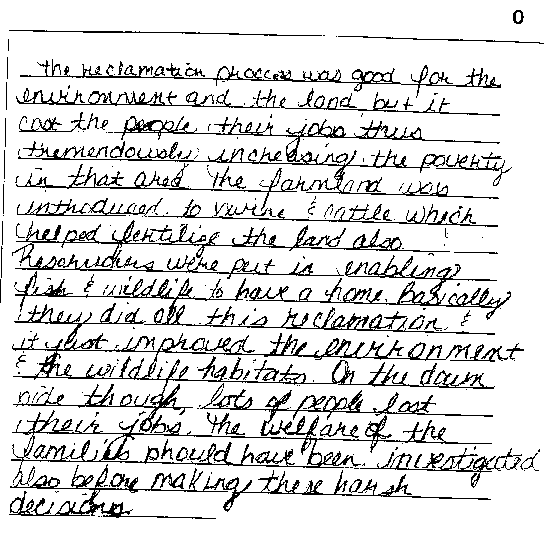 0
The reclamation process was good for the
environment and the land but it
cost the people their jobs thus
tremendously increasing the poverty
in that area. The farmland was
introduced to swine & cattle which
helped fertilize the land also.
Reservoirs were put in enabling
fish & wildlife to have a home. Basically
they did all this reclamation &
it just improved the environment
& the wildlife habitats. On the down
side though, lots of people lost
their jobs. The welfare of the
families should have been investigated
also before making these harsh
decisions.